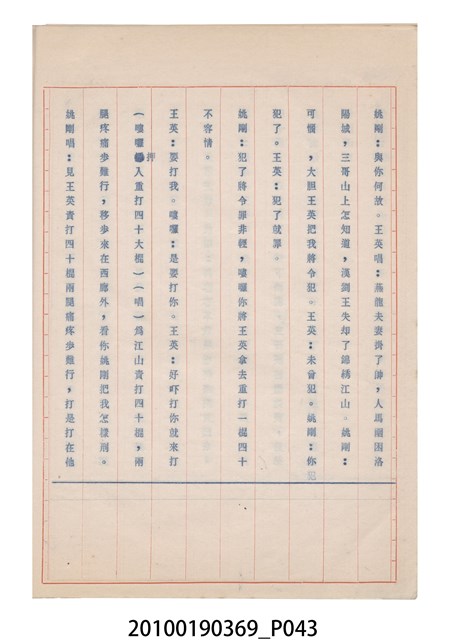 姚剛：與你何故。王英唱：燕龍夫妻掛了帥，人馬剛困洛
陽城，三哥山上怎知道，漢朝王失却了錦綉江山。姚剛：
可惱，大胆王英把我將令犯。王英：未曾犯。姚剛：你犯
犯了。王英：犯了就罪。
姚剛：犯了將令罪非輕，嘍囉你將王英拿去重打一棍四十
不容情。
王英：要打我。嘍囉：是要打你。王英：好吓打你就來打
（嘍囉押入重打四十大棍）（唱）為江山責打四十棍，兩
腿疼痛步難行，移步來在西廊外，看你姚剛把我怎樣刑。
姚剛唱：見王英責打四十棍兩腿痛疼步難行，打是打在他
20100190369_P043